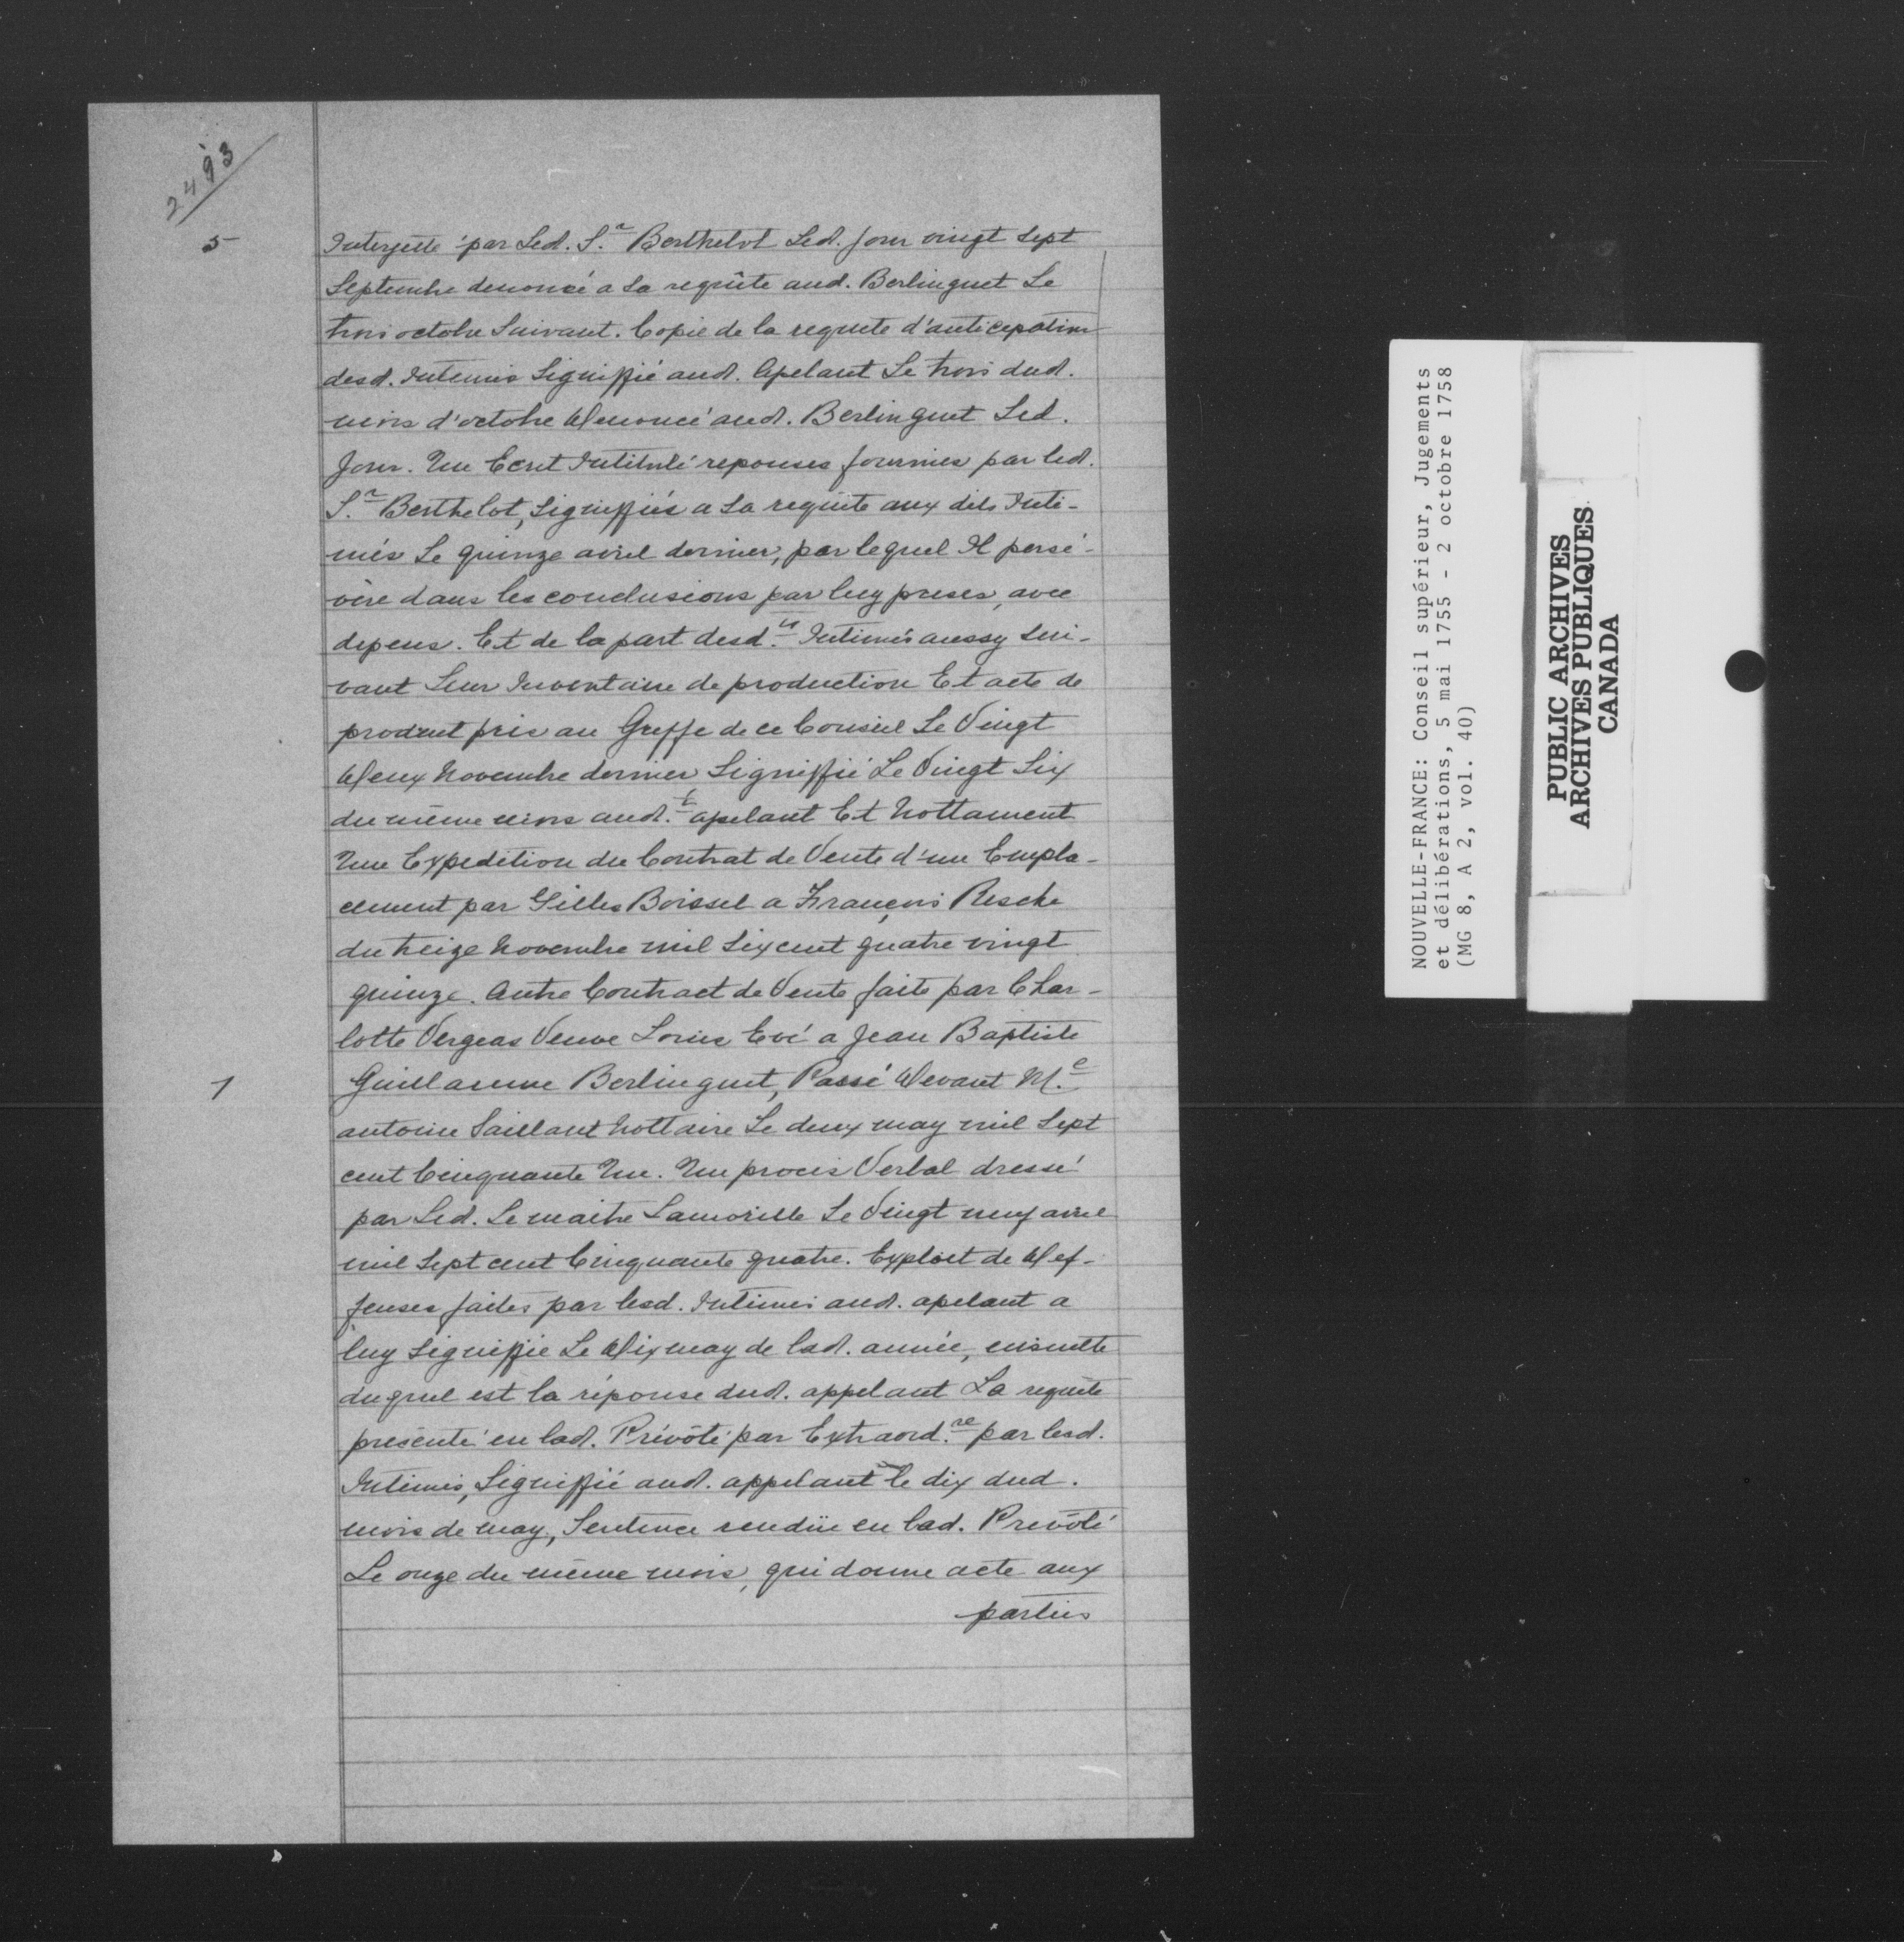 2493
5
Interjetté par Led. S.r Berthelot Led. jour vingt Sept
Septembre denoncé a Sa requête aud. Berlinguet Le
trois octobre Suivant. Copie de la requete d'anticipation
desd. Intimés Signiffié aud. Apelant Le trois dud.
mois d'octobre denoncé aud. Berlinguet Led.
Jour. Un Ecrit Intitulé reponses fournies par led.
S.r Berthelot, Signiffiés a Sa requête aux dits Inti-
més Le quinze avril dernier, par lequel Il persé-
vère dans les conclusions par luy prises, avec
depens. Et de la part desd.ts Intimés aussy Sui-
vant Leur Inventaire de production Et acte de
produit pris au Greffe de ce Conseil Le Vingt
deux Novembre dernier Signiffié Le Vingt Six
du même mois aud.t apelant Et Nottament
Une Expedition du Contrat de Vente d'un Empla-
cement par Gilles Boissel a François Resche
du treize Novembre mil Six cent quatre vingt
quinze. Autre Contract de Vente faite par Char-
lotte Vergeas Veuve Louis Evé a Jean Baptiste
1
Guillaume Berlinguet, Passé devant M.e
antoine Saillant Nottaire Le deux may mil Sept
cent Cinquante Un. Un procès Verbal dressé
par Led. Lemaitre Lamorille Le Vingt neuf avril
mil Sept cent Cinquante quatre. Exploit de def-
fenses faites par lesd. Intimés aud. apelant a
luy Signiffié Le dix may de lad. année, ensuitte
duquel est la réponse dud. appelant La requête
presenté en lad. Prévôté par Extraord.re par lesd.
Intimés, Signiffié aud. appelant le dix dud.
mois de may, Sentence rendüe en lad. Prevôté
Le onze du même mois, qui donne acte aux
parties
NOUVELLE-FRANCE: Conseil supérieur, Jugements
et délibérations, 5 mai 1755 - 2 octobre 1758
(MG 8, A 2, vol. 40)
PUBLIC ARCHIVES
ARCHIVES PUBLIQUES
CANADA